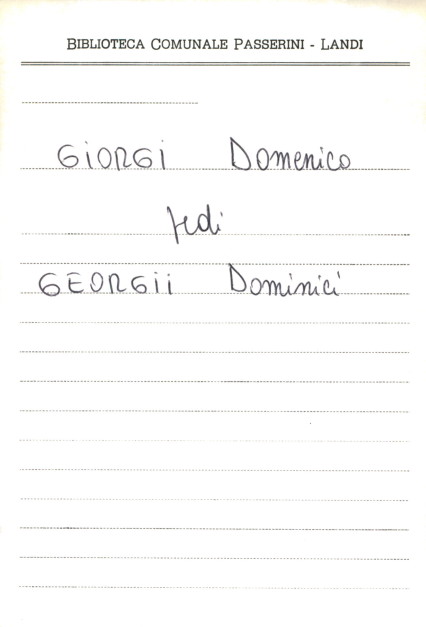 BIBLIOTECA COMUNALE PASSERINI - LANDI
GIORGI Domenico
vedi
GEORGII Dominici